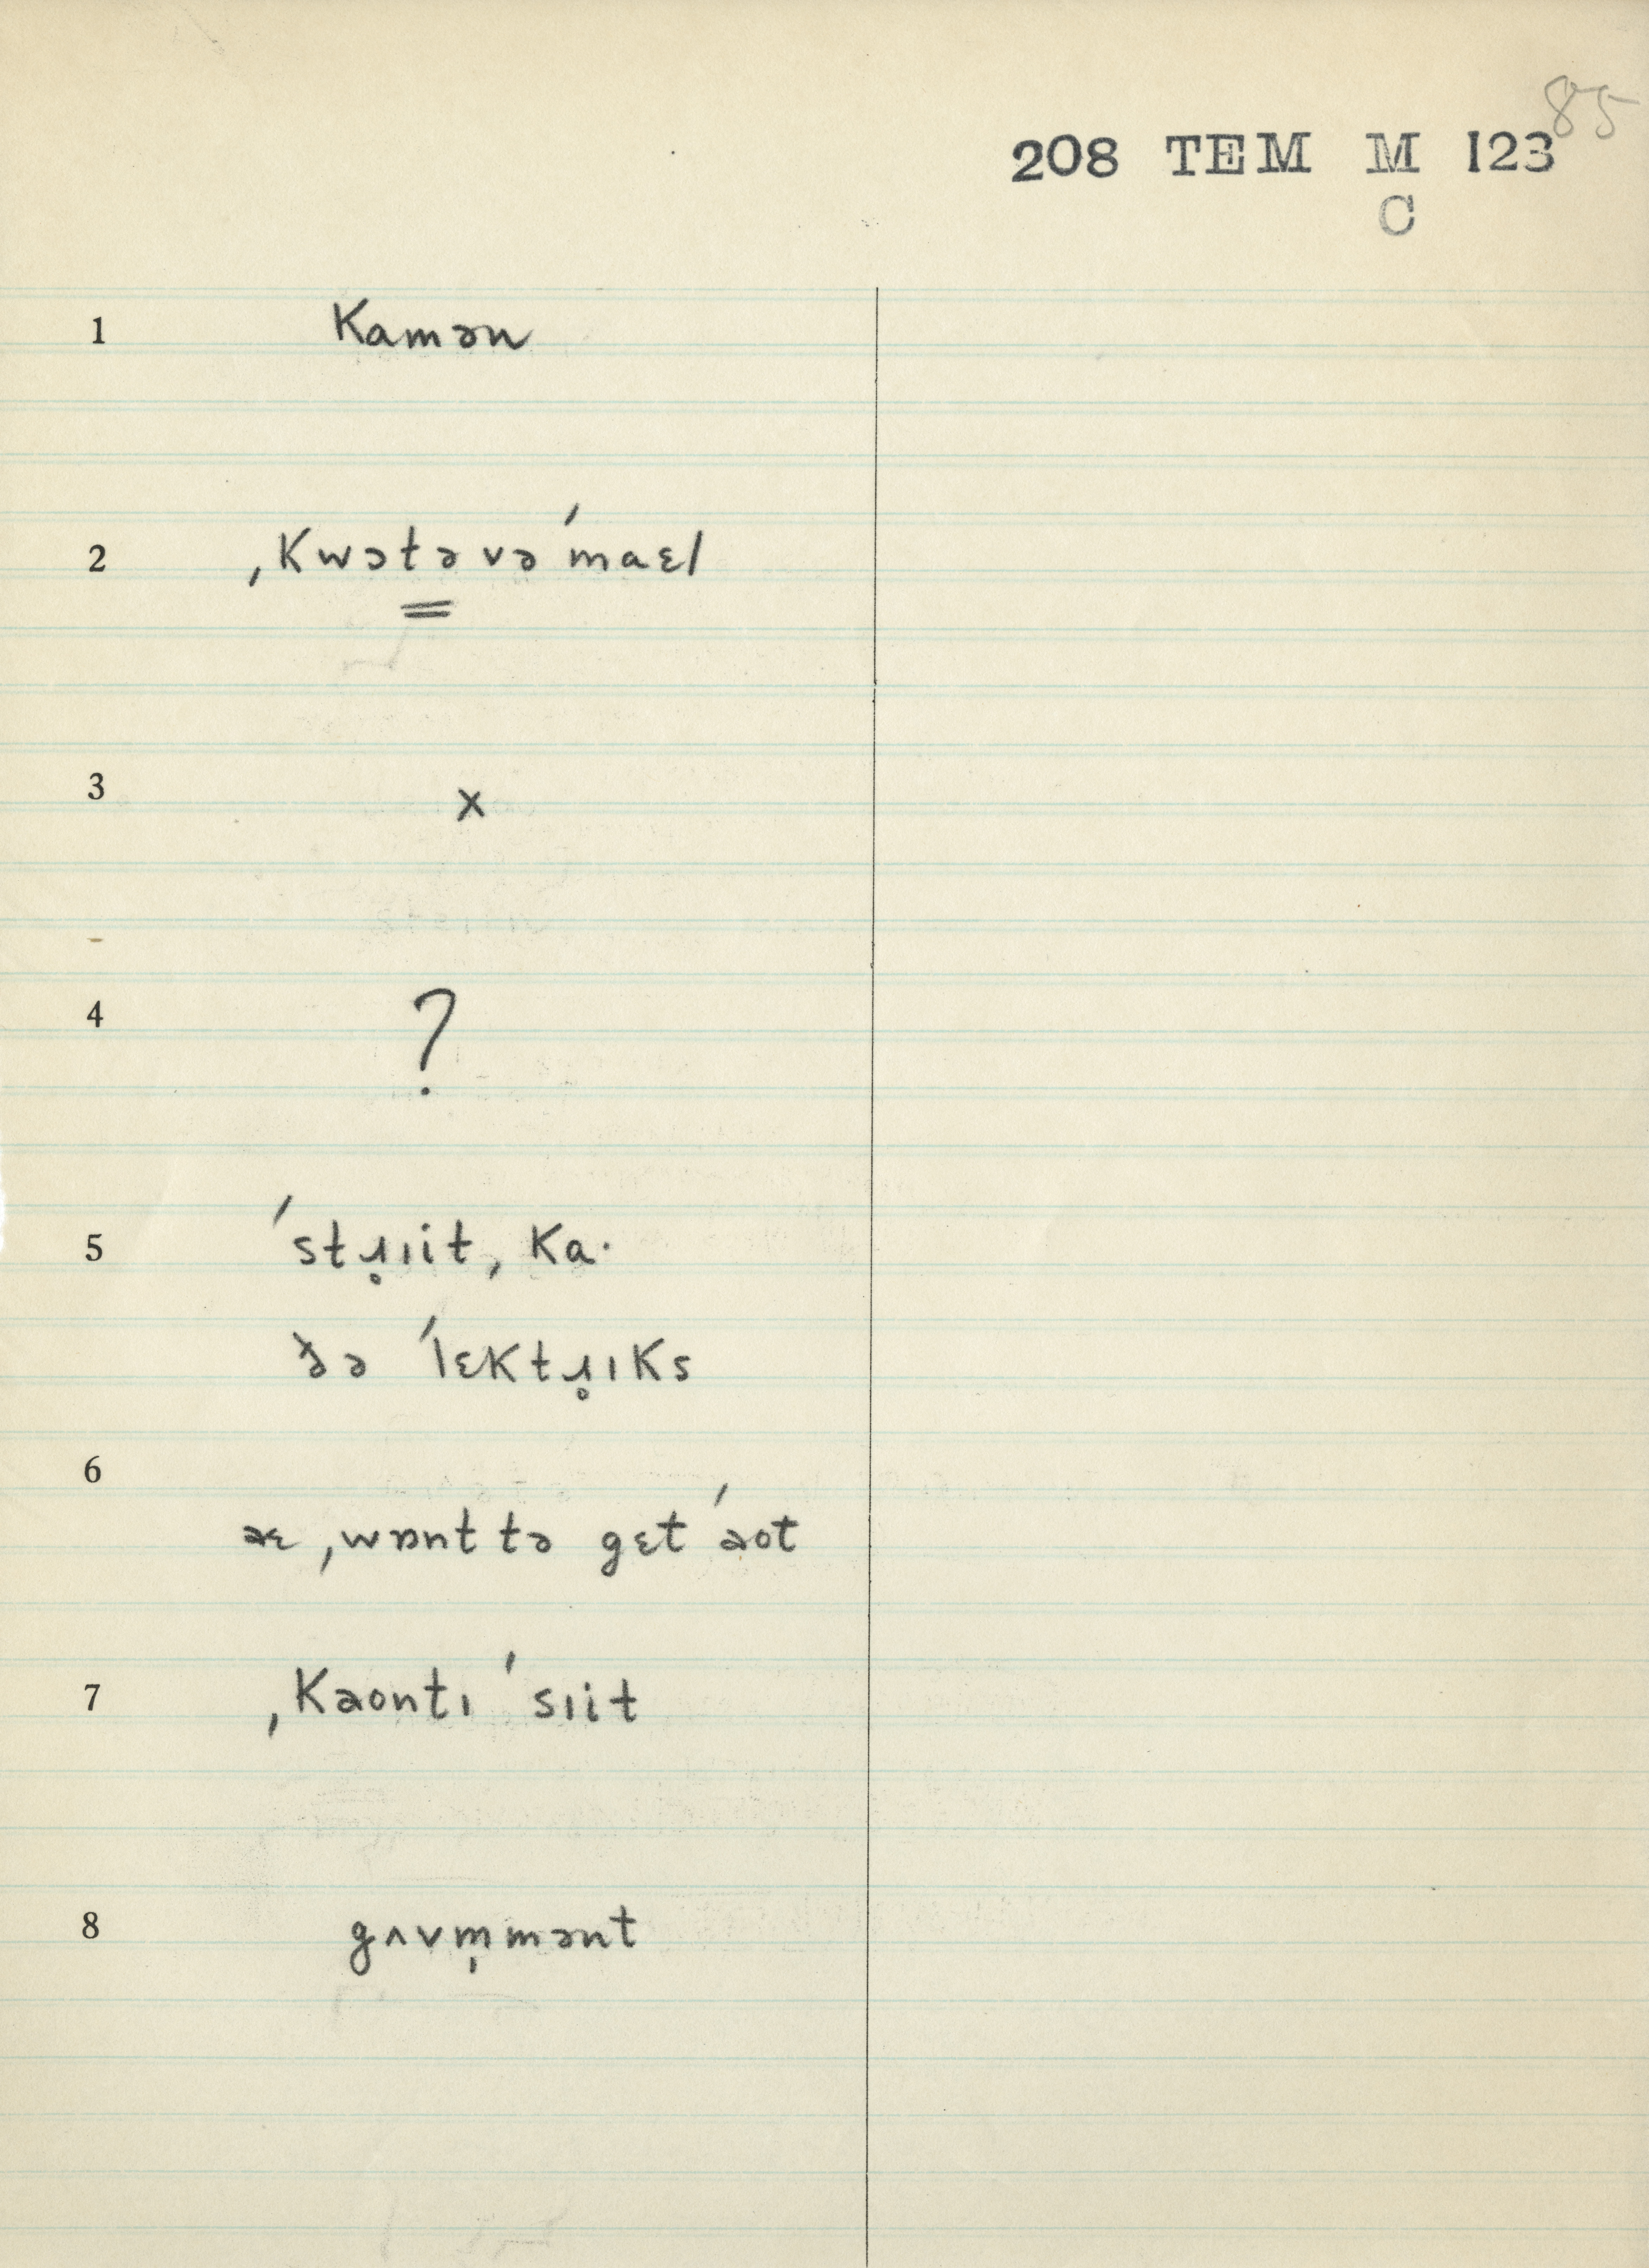 85
208 TEM M 123
C
1 kamən
2 ˌkwɔtəvəˈmaɛl
3 x
4 ?
5 ˈstɹ̥ɪitˌka·
ðə ˈlɛktɹ̥ɪks
6
aɛ ˌwɒnt tə gɛt ˈaot
7 ˌkaontɪ ˈsɪit
8 gʌvm̩mənt